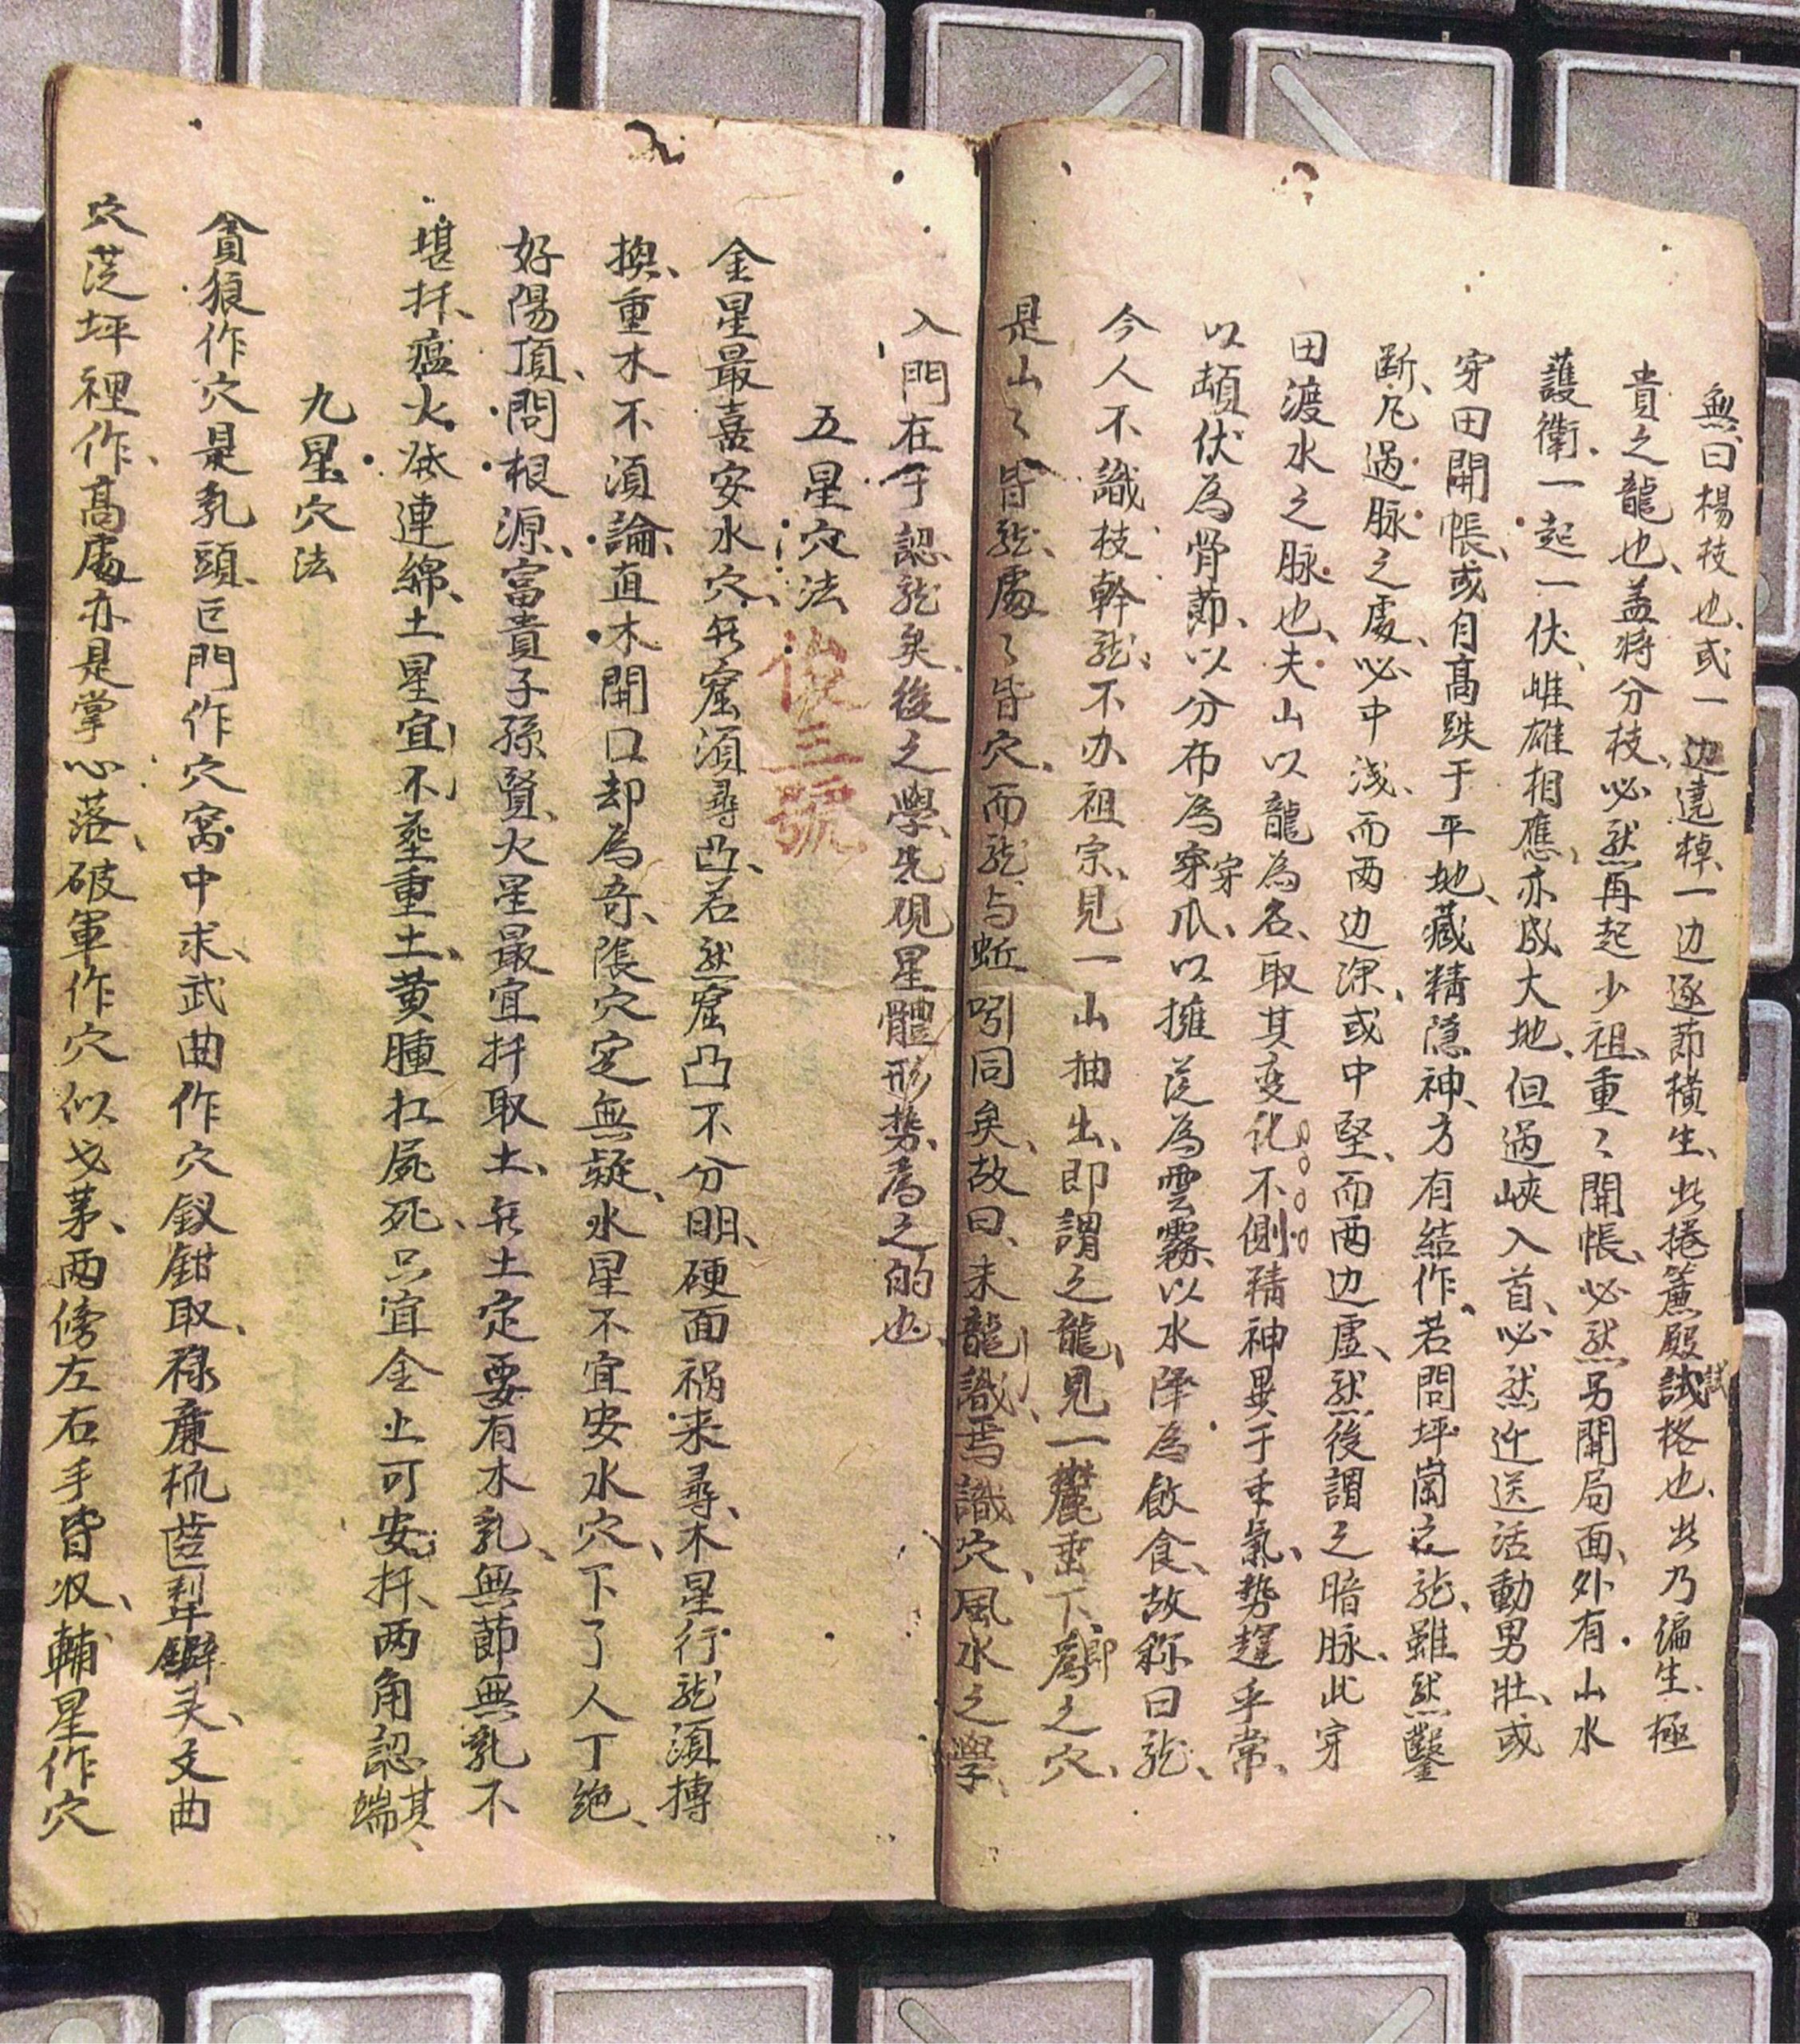 無曰楊枝也、或一边逹棹、一边逐節橫生、此捲簾殿試格也、此乃偏生、極
貴之龍也、盖将分枝、必然再起少祖、重〻開帳、必然另開局面、外有山水
護衛、一起一伏、雌雄相應、亦成大地、但過峽入首、必然迎送活動男壯、或
穿田開帳、或自高跌于平地、藏精隐神、方有結作、若問坪崗之龙、雖然鑿
断、凡過脉之處、必中浅、而两边深、或中堅、而两边虚、然後謂之暗脉、此穿
田渡水之脉也、夫山以龍為名、取其变化不側、精神異于重氣、勢趕乎常、
以頓伏為骨節、以分布為穿爪、以擁从為雲霧、以水降為飲食、故称曰龙、
今人不識枝幹龙、不办祖宗、見一山抽出、即謂之龍、見一麓垂下、即為之穴、
是山〻皆龙、處〻皆穴、而龙与蚯蚓同矣、故曰、未龍識焉識穴、風水之學、
入門在于認龙矣、後之學、先观星體形势、為之的也、
五星穴法
俊三號
金星最喜安水穴、旡窟須尋凸、若然窟凸不分明、硬面祸来尋、木星行龙須摶
換、重木不須論、直木開口却為奇、倀穴定無疑、水星不宜安水穴、下了人丁绝、
好陽頂、問根源、富貴子孫賢、火星最宜扦取土、旡土定要有木乳、無節無乳不
堪扦、瘟火依連綿、土星宜不塟重土、黄腫扛屍死、只宜金止可安扦、两角認其端、
九星穴法
貪狼作穴是乳頭、巨門作穴窩中求、武曲作穴釵鉗取、禄廉梳齒犁鐴头、文曲
穴从坪裡作、高處亦是掌心落、破軍作穴似戈茅、两傍左右手皆収、輔星作穴